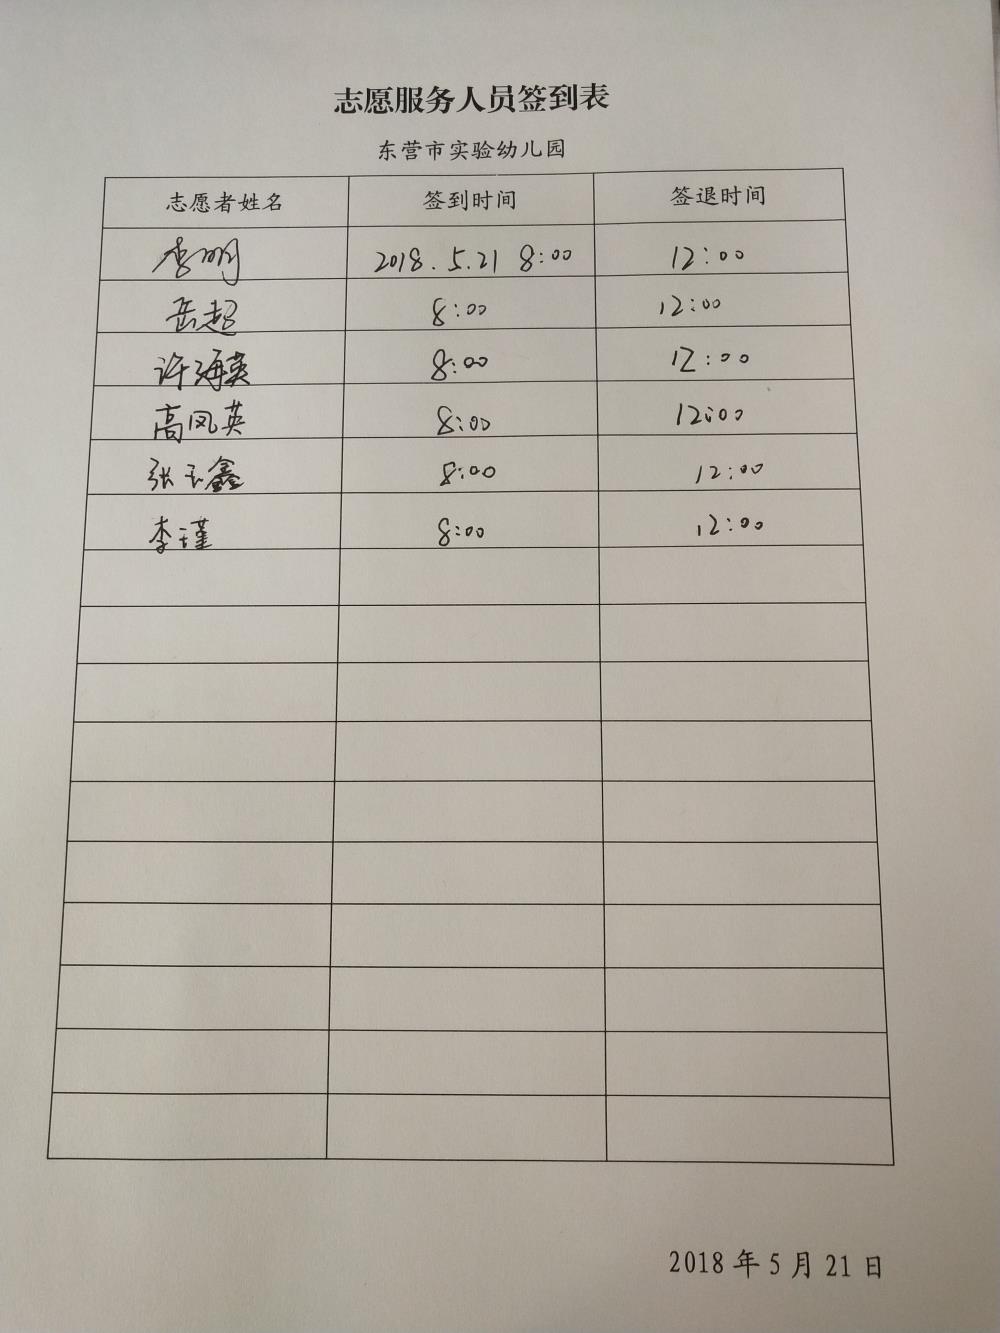 志愿服务人员签到表
东营市实验幼儿园
志愿者姓名 签到时间 签退时间
李明 2018.5.21 8:00 12:00
岳超 8:00 12:00
许海英 8:00 12:00
高凤英 8:00 12:00
张玉鑫 8:00 12:00
李瑾 8:00 12:00
2018年5月21日